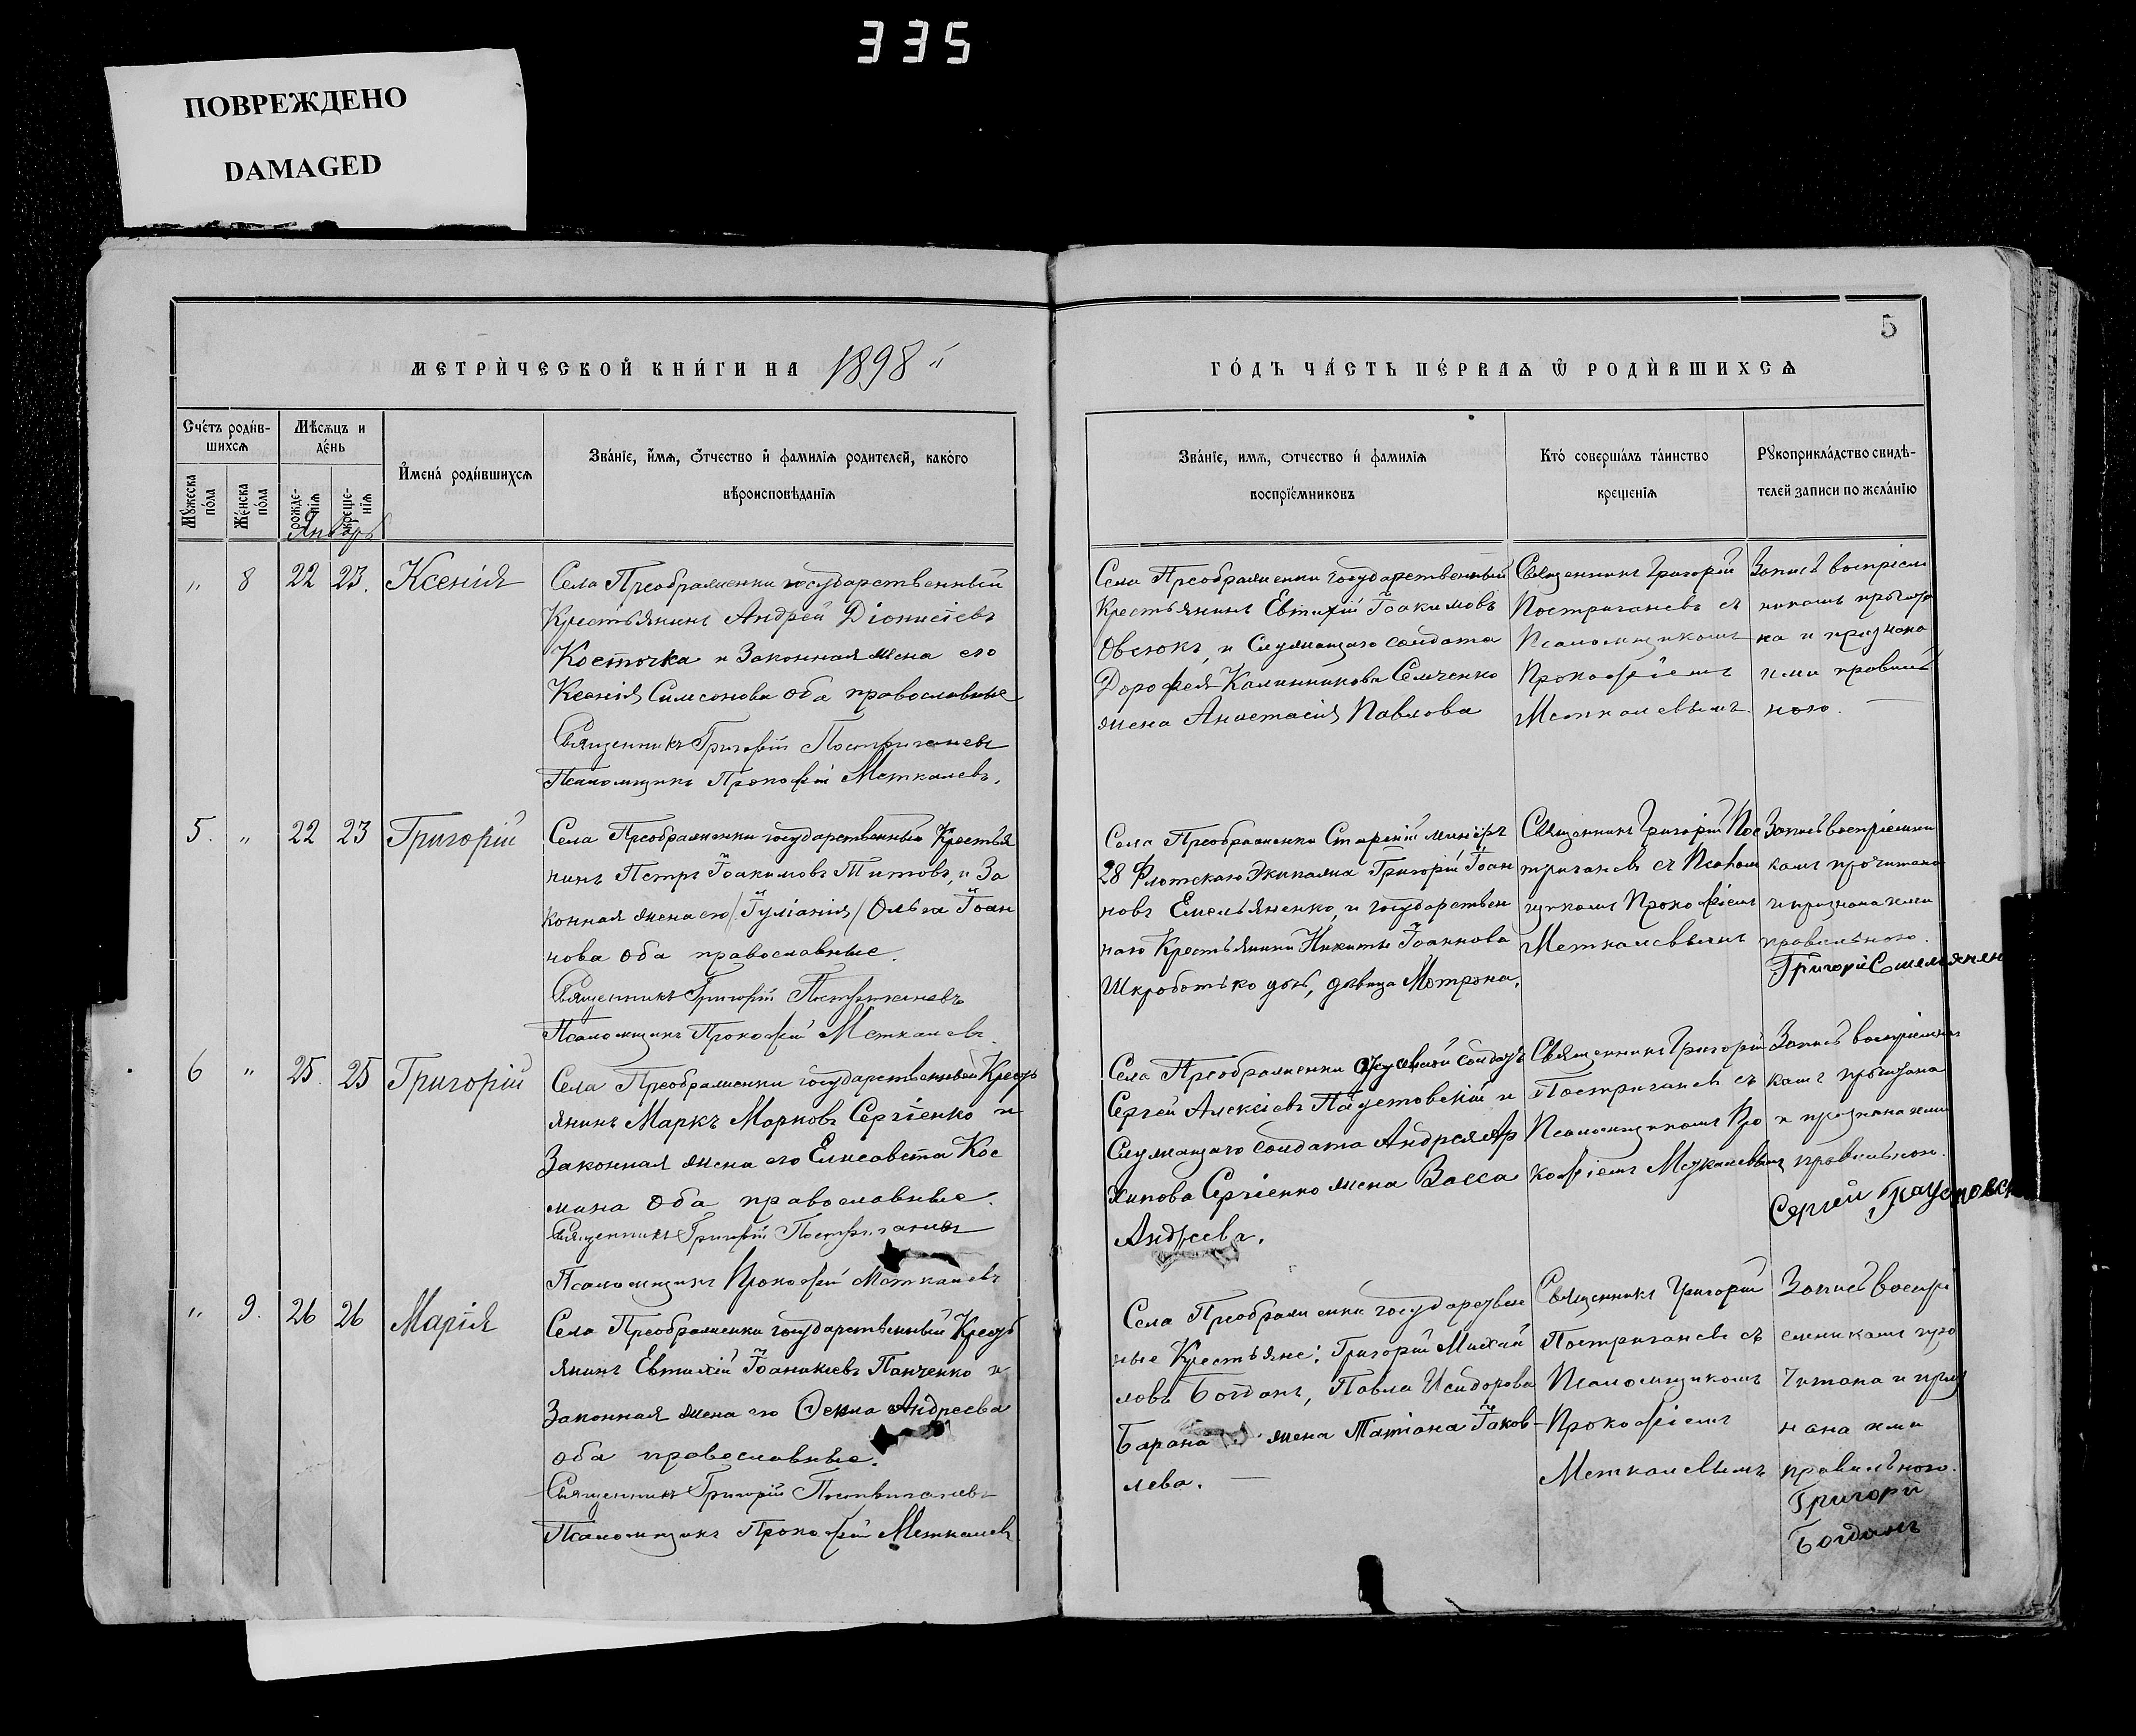 335
ПОВРЕЖДЕНО
DAMAGED
5
МЕТРИ́ЧЕСКОЙ КНИ́ГИ НА 1898 „
ГО́ДЪ ЧА́СТЬ ПЕ́РВАѦ Ѿ РОДИ́ВШИХСѦ
Сче́тъ роди́в-
шихсѧ
Мѣ́сѧцъ и
де́нь
И҆мена̀ роди́вшихсѧ
Зва́нїе, и҆́мѧ, ѻ҆́тчество и҆ фами́лїѧ роди́телей, како́го
вѣроисповѣ́данїѧ
Мꙋ́жеска
по́ла
Же́нска
по́ла
рожде-
нїѧ
креще-
нїѧ
Январь
Зва́нїе, имѧ, ѻтчество и҆ фами́лїѧ
воспрїе́мниковъ
Кто̀ соверша́лъ та́инство
креще́нїѧ
Рꙋкоприкла́дство свидѣ́-
телей записи по жела́нїю
„ 8 22 23. Ксенія
Села Преображенки государственный
Крестьянинъ Андрей Діонисіевъ
Косточка и Законная жена его
Ксенія Симеонова оба православные
Священникъ Григорій Постригачевъ
Псаломщикъ Прокофій Меткалевъ.
Села Преображенки государственный
Крестьянинъ Евтихій Іоакимовъ
Овсюкъ, и Служащаго солдата
Дорофея Калинникова Семченко
жена Анастасія Павлова
Священникъ Григорій
Постригачевъ съ
Псаломщикомъ
Прокофіемъ
Меткалевымъ.
Запись воспріем
никамъ прочита
на и признана
ими правиль
ною.
5. „ 22 23 Григорій
Села Преображенки государственный Крестья
нинъ Петръ Іоакимовъ Титовъ, и За
конная жена его /Іуліанія/ Ольга Іоан
нова оба православные.
Священникъ Григорій Постригачевъ
Псаломщикъ Прокофій Меткалевъ
Села Преображенки Старшій минеръ
28 Флотскаго Экипажа Григорій Іоан
новъ Емельяненко, и государствен
наго Крестьянина Никиты Іоаннова
Шкроботько дочь, девица Мотрона.
Священникъ Григорій Пос
тригачевъ съ Псалом
щикомъ Прокофіемъ
Меткалевымъ
Запись воспріемни
камъ прочитана
и признана ими
правильною.
Григорій Емельянен
6 „ 25. 25 Григорій
Села Преображенки государственный Кресть
янинъ Маркъ Марковъ Сергіенко и
Законная жена его Елисавета Кос
мина оба православные.
Священникъ Григорій Постригачевъ
Псаломщикъ Прокофій Меткалевъ
Села Преображенки солдатъ
Сергей Алексіевъ Паустовскій и
Служащаго солдата Андрея Ар
хипова Сергіенко жена Васса
Андреева.
Священникъ Григорій
Постригачевъ съ
Псаломщикомъ Про
кофіемъ Меткалевымъ
Запись воспріемни
камъ прочитана
и признана ими
правильною.
Сергей Паустовск
„ 9. 26 26 Марія
Села Преображенки государственный Кресть
янинъ Евтихій Іоанникіевъ Панченко и
Законная жена его Ѳекла Андреева
оба православные.
Священникъ Григорій Постригачевъ
Псаломщикъ Прокофій Меткалевъ
Села Преображенки государствен
ные Крестьяне: Григорій Михай
ловъ Богданъ, Павла Исидорова
Барана жена Татіана Іаков-
лева.
Священникъ Григорій
Постригачевъ съ
Псаломщикомъ
Прокофіемъ
Меткалевымъ
Запись воспрі
емникамъ про
читана и приз
нана ими
правильною.
Григорій
Богданъ